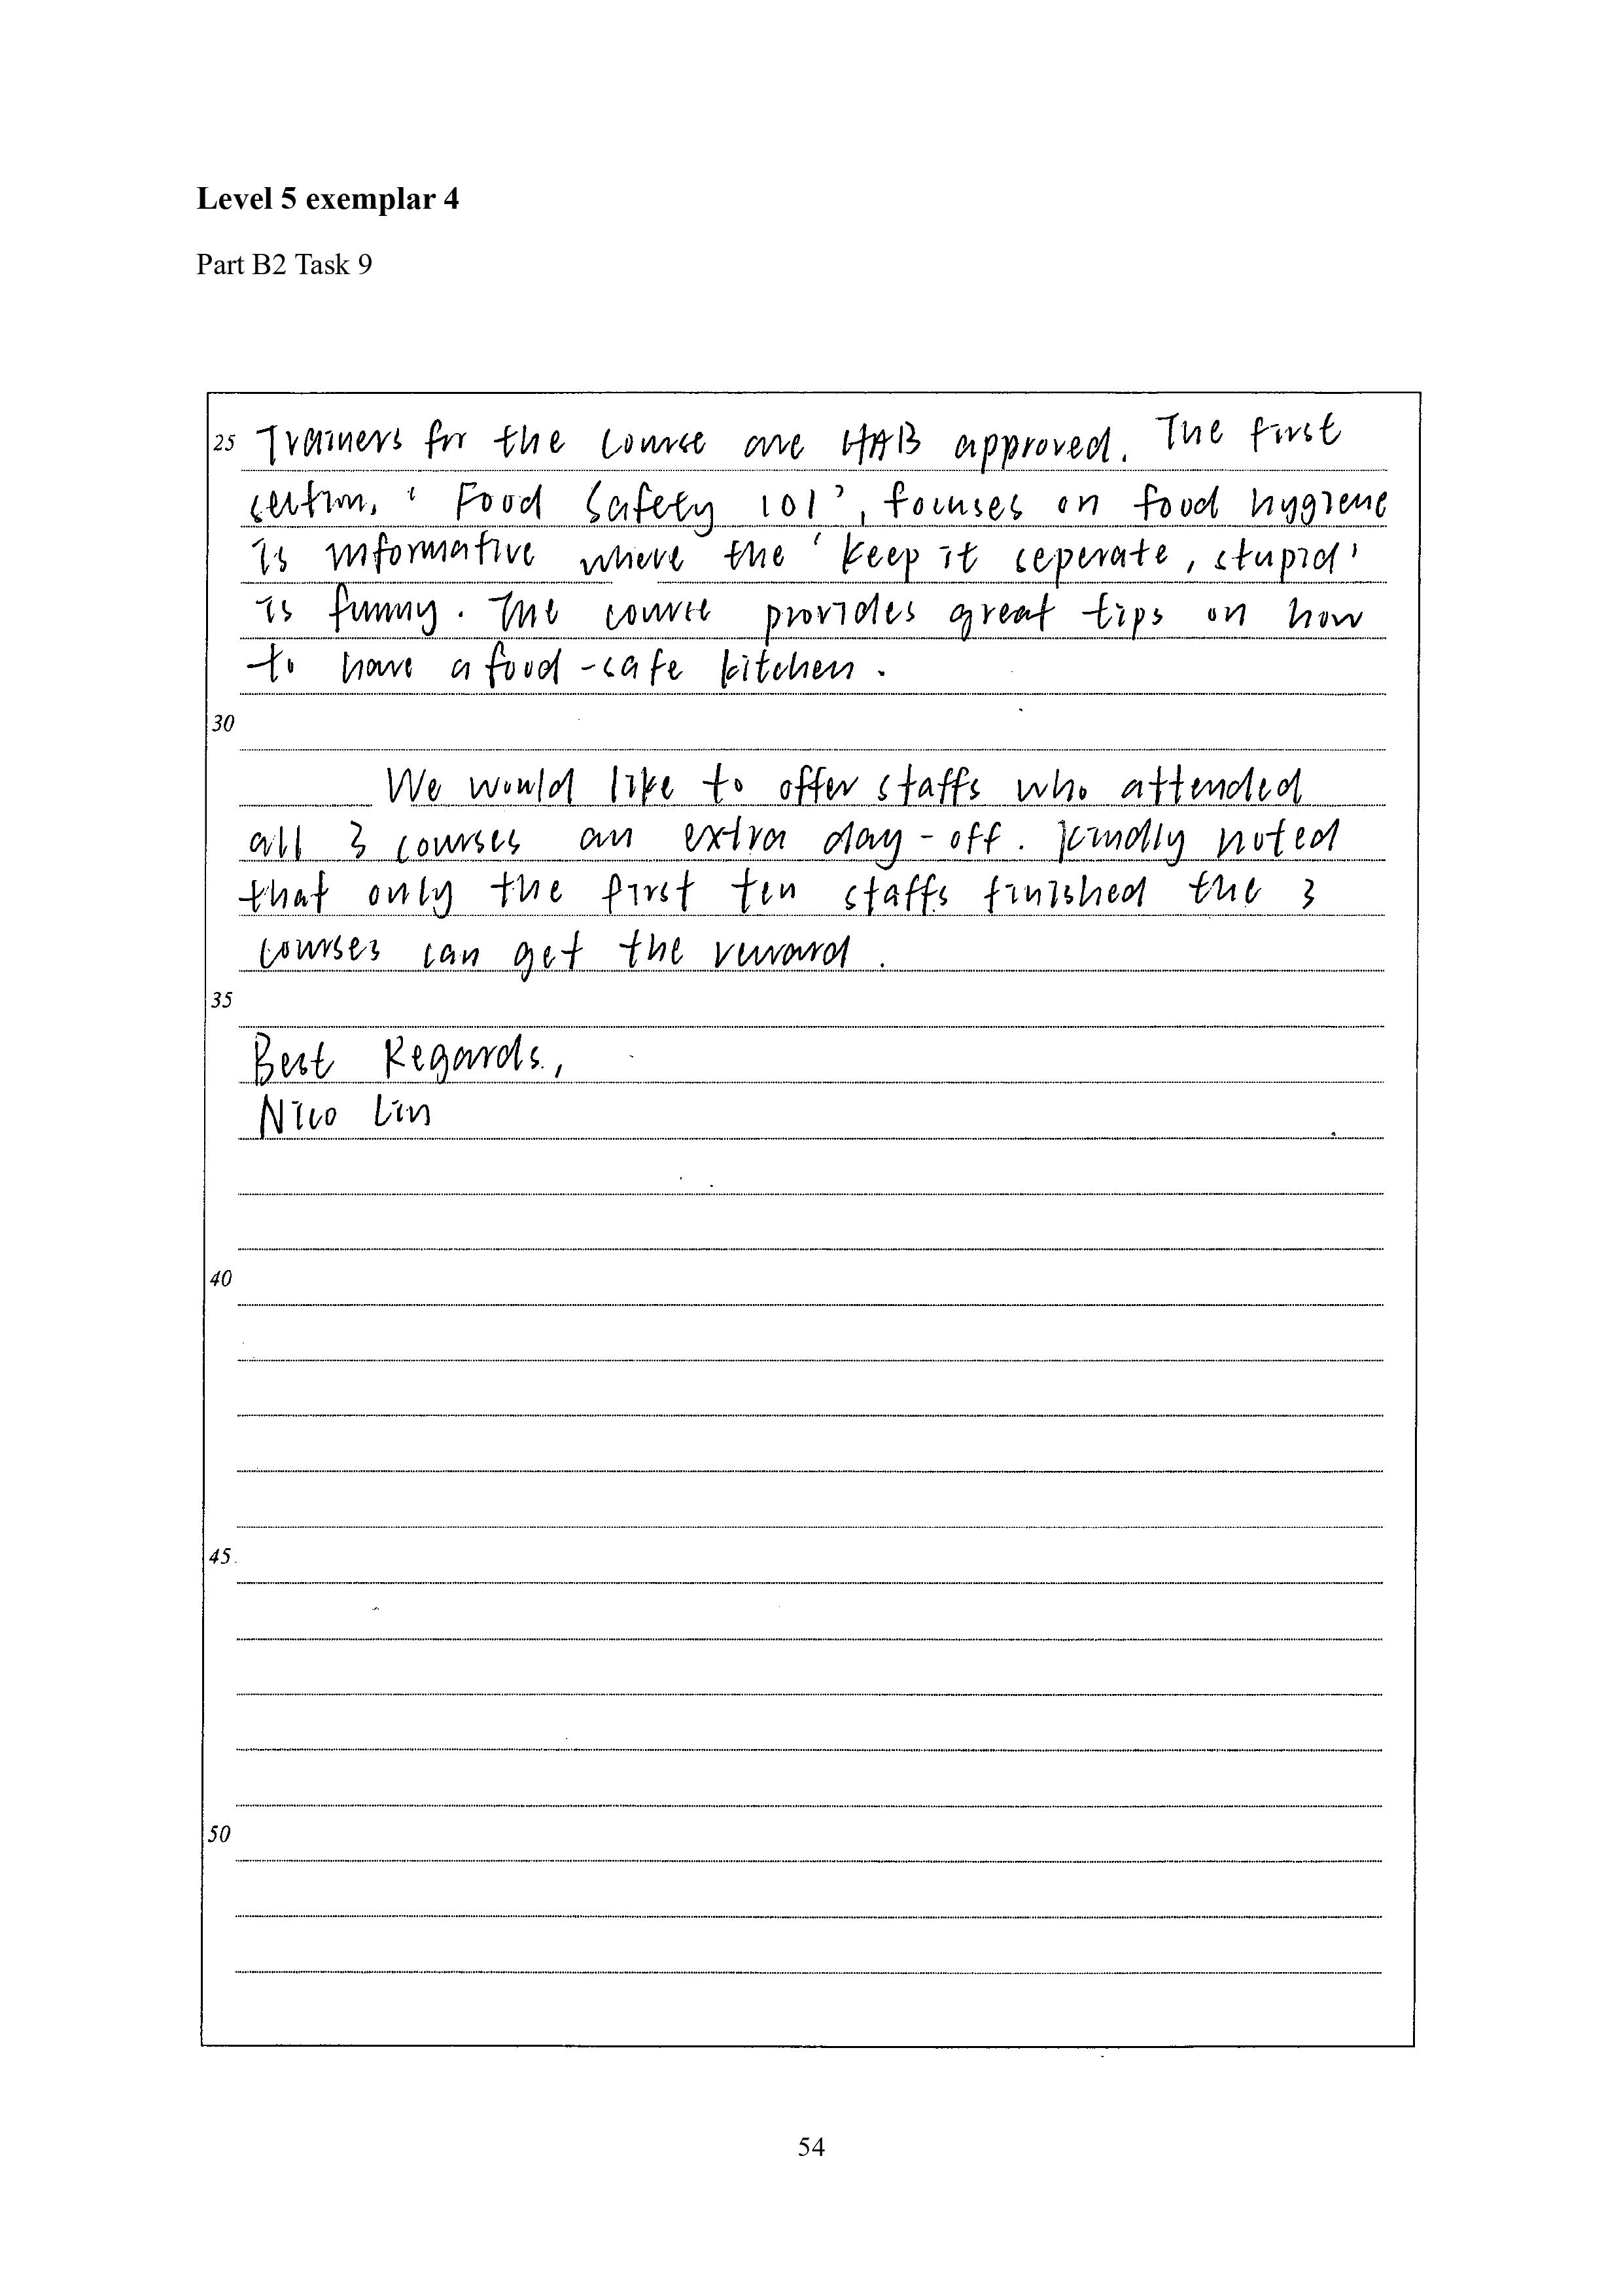 Level 5 exemplar 4
Part B2 Task 9
25 Trainers for the course are HAB approved. The first
section, ‘ Food Safety 101’, focuses on food hygiene
is informative where the ‘ keep it seperate, stupid’
is funny. The course provides great tips on how
to have a food-safe kitchen.
30
We would like to offer staffs who attended
all 3 courses an extra day-off. Kindly noted
that only the first ten staffs finished the 3
courses can get the reward.
35
Best Regards,
Nico Lin
40
45
50
54